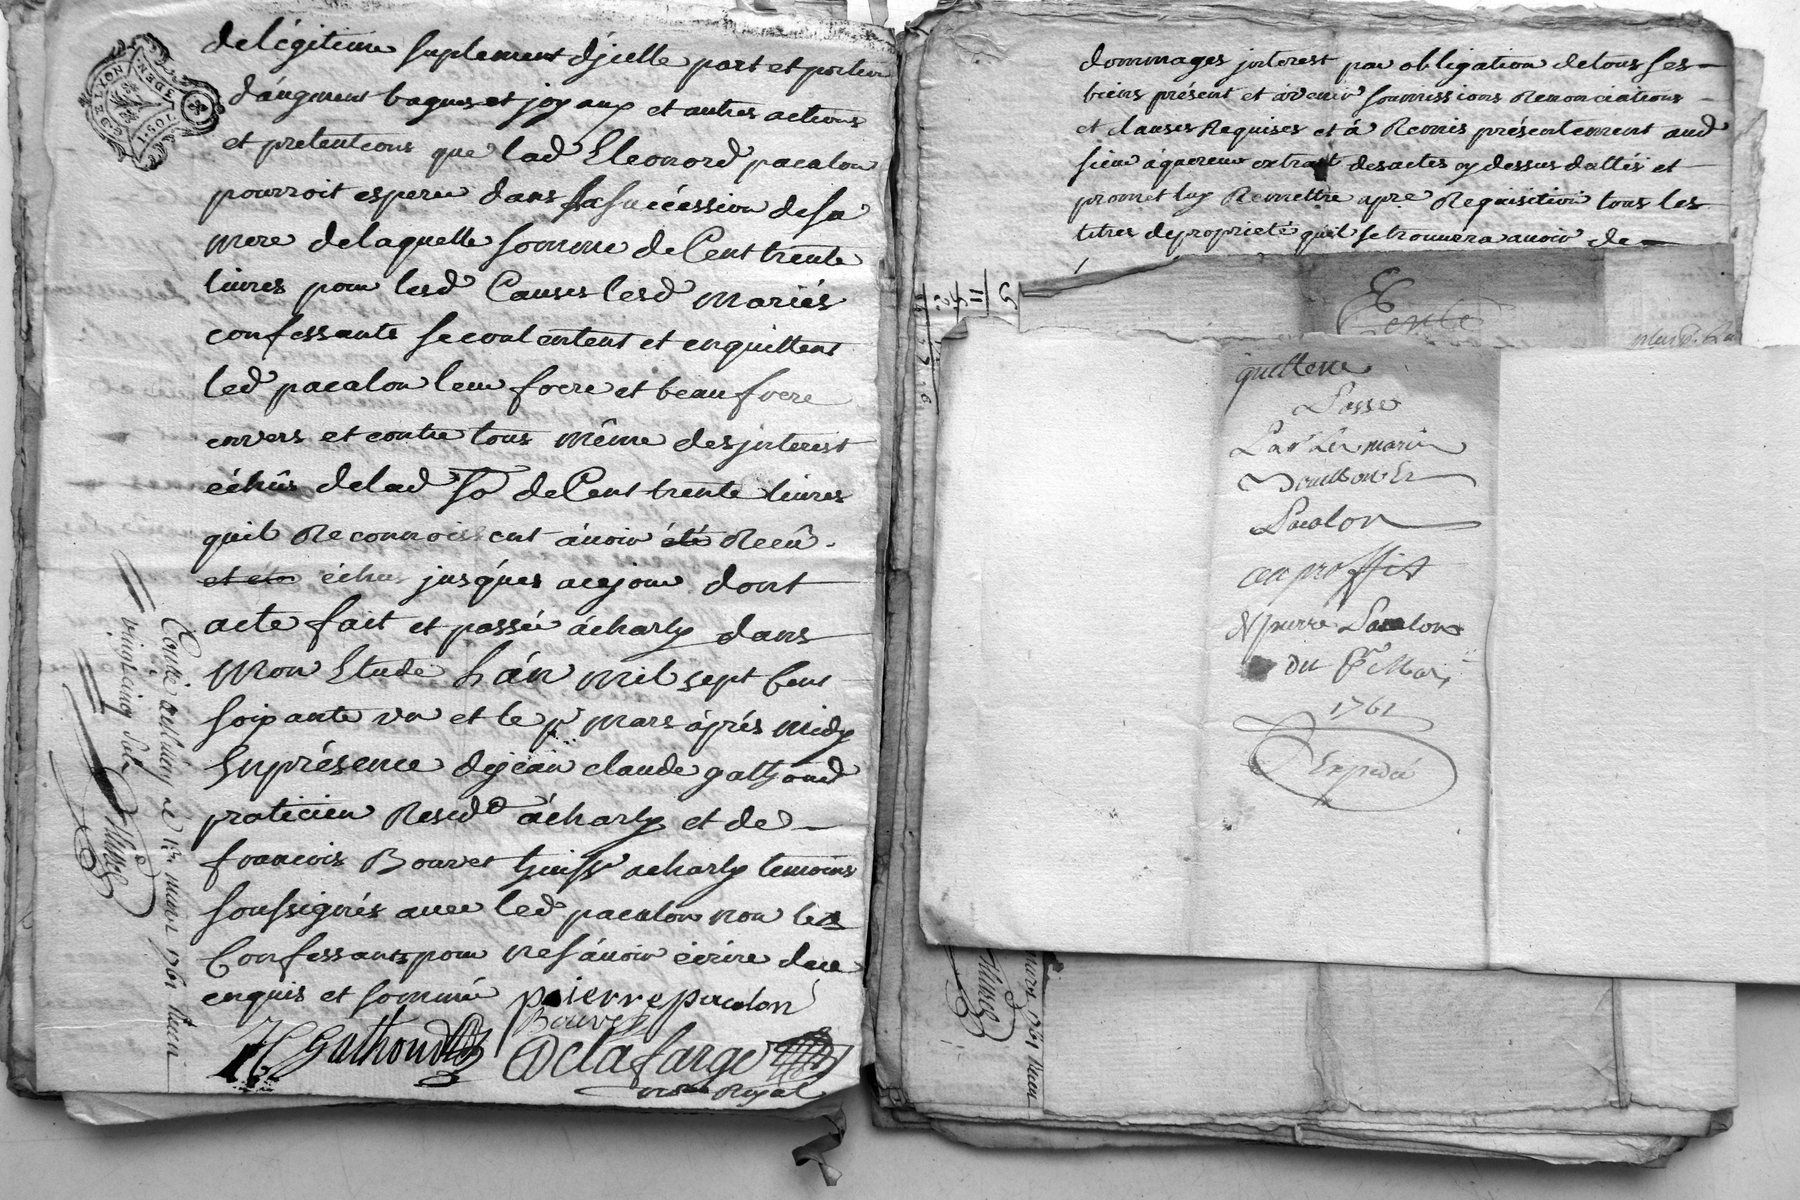 de légitime suplement d'jcelle part et portion
d'augment bagues et joyaux et autres actions
et pretentions que lad Eleonord pacalon
pourroit esperer dans sa succéssion de sa
mere de laquelle somme de Cent trente
livres pour lesd Causes lesd mariés
confessants se contentent et enquittent
led pacalon leur frere et beaufrere
envers et contre tous même des jnterest
échûs de lad so de Cent trente livres
quil Reconnoissent avoir été Reçû
et été échus jusques a ce jour dont
acte fait et passé à charly dans
mon Etude L'an mil sept Cent
soixante un et le pr mars après midy
En présence de jean claude gathoud
praticien Resid à charly et de
francois Bouvet huissr a charly temoins
soussignés avec led pacalon non les
Confessants pour ne sçavoir écrire de ce
enquis et sommé pierre pacalon
Bouvet
JC Gathoud Delafarge
nre Royal
Conté au llmg Le 12 mars 1761 Recu
vingt cinq sols
GENER NOT
3DEN.
LYON
dommages jnterest par obligation de tous ses
biens présent et avenir soumissions Renonciations
et clauses Requises et à Remis présentement aud
sieur aquereur extrait des actes cy dessus dattés et
promet luy Remettre a pre Requisition tous les
titres de proprieté quil se trouvera avoir de
Vente
quittence
Passé
Par Les mariés
Pacalon
au proffit
De pierre Pacalon
du pr Mars
1761
Expedié
mars 1761 Recu